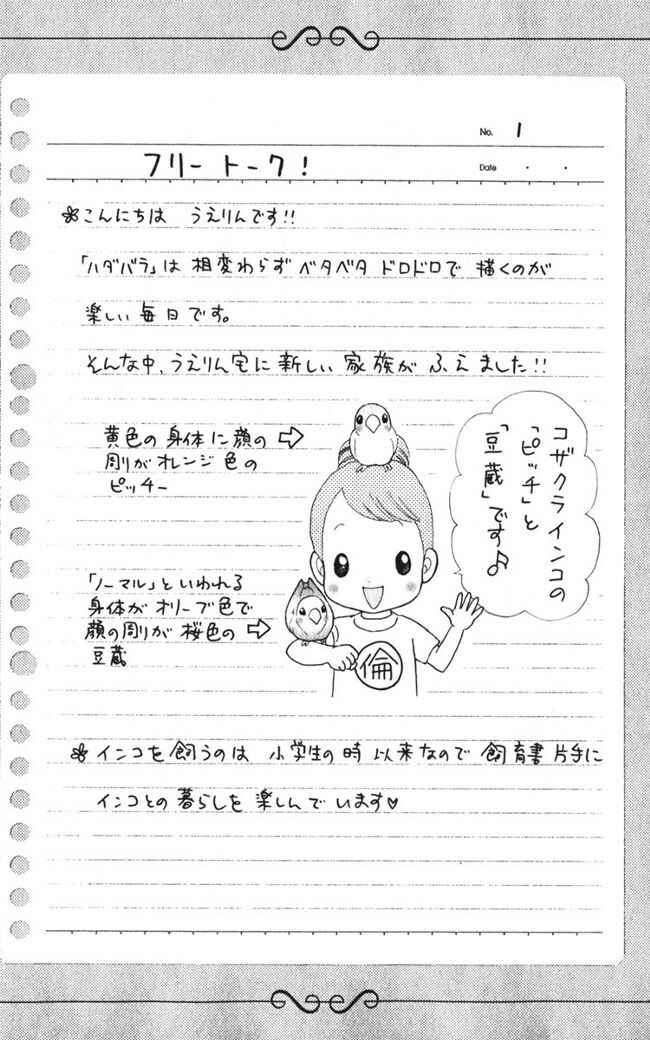 No. 1
フリートーク!
Date ・ ・
✿こんにちは うえりんです!!
「ハダバラ」は 相変わらず ベタベタ ドロドロで 描くのが
楽しい 毎日です。
そんな中、うえりん宅に 新しい 家族が ふえました!!
黄色の 身体に 顔の ⇨
周りがオレンジ色の
ピッチー
コザクラインコの
「ピッチ」と
「豆蔵」です♪
「ノーマル」といわれる
身体が オリーブ色で
顔の周りが 桜色の ⇨
豆蔵
倫
✿インコを飼うのは 小学生の時 以来なので 飼育書 片手に
インコとの 暮らしを 楽しんで います♡